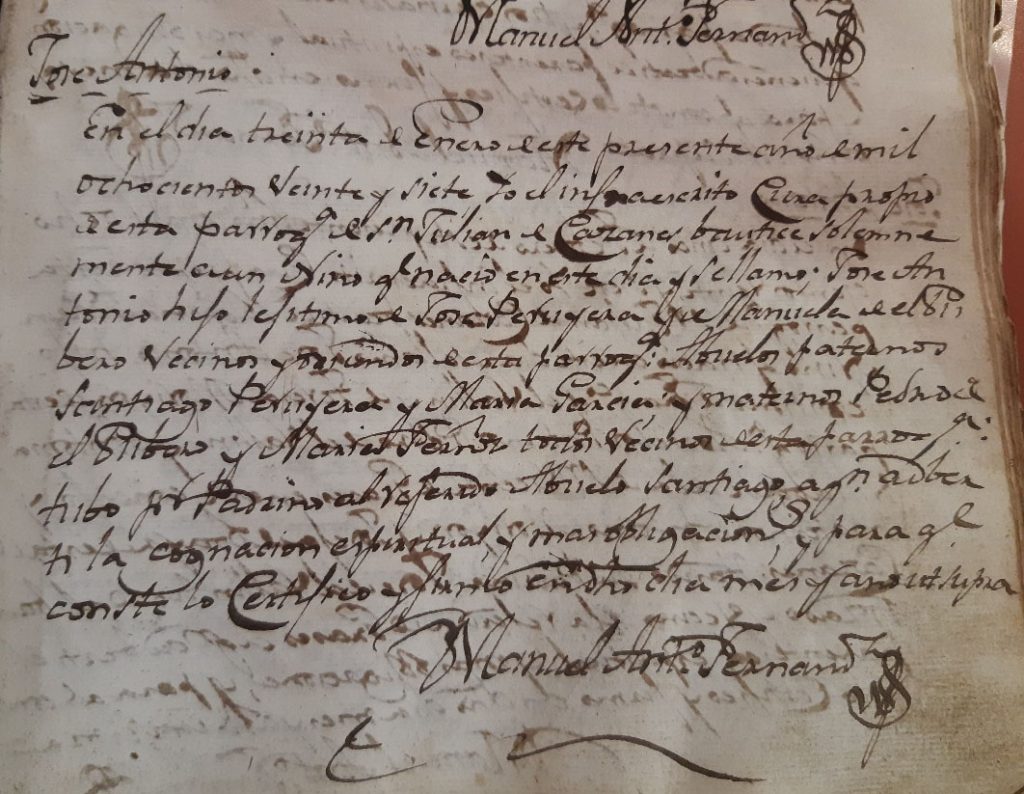 Manuel Ant.º Fernand.z
Jose Antonio
En el dia treinta de Enero de este presente año de mil
ochocientos Veinte y siete Yo el infraescrito Cura propio
de esta parroq.ª de S.n Julian de Cazanes bautice solemne
mente a un Niño q.e nacio en este dia y se llamo; Jose An
tonio hijo lesitimo de Jose Peruyera y de Manuela de el Ri
bero Vecinos y oriundos de esta parroq.ª: Abuelos paternos
Santiago Peruyera y Maria Garcia; y maternos Pedro de
el Ribero y Maria todos Vecinos de esta parroq.ª:
tubo p.r Padrino al referido Abuelo Santiago, a q.n adber
ti la cognacion espiritual, y mas obligacion, y para q.e
conste lo Certifico y firmo en dho dia mes y año ut supra
Manuel Ant.º Fernand.z